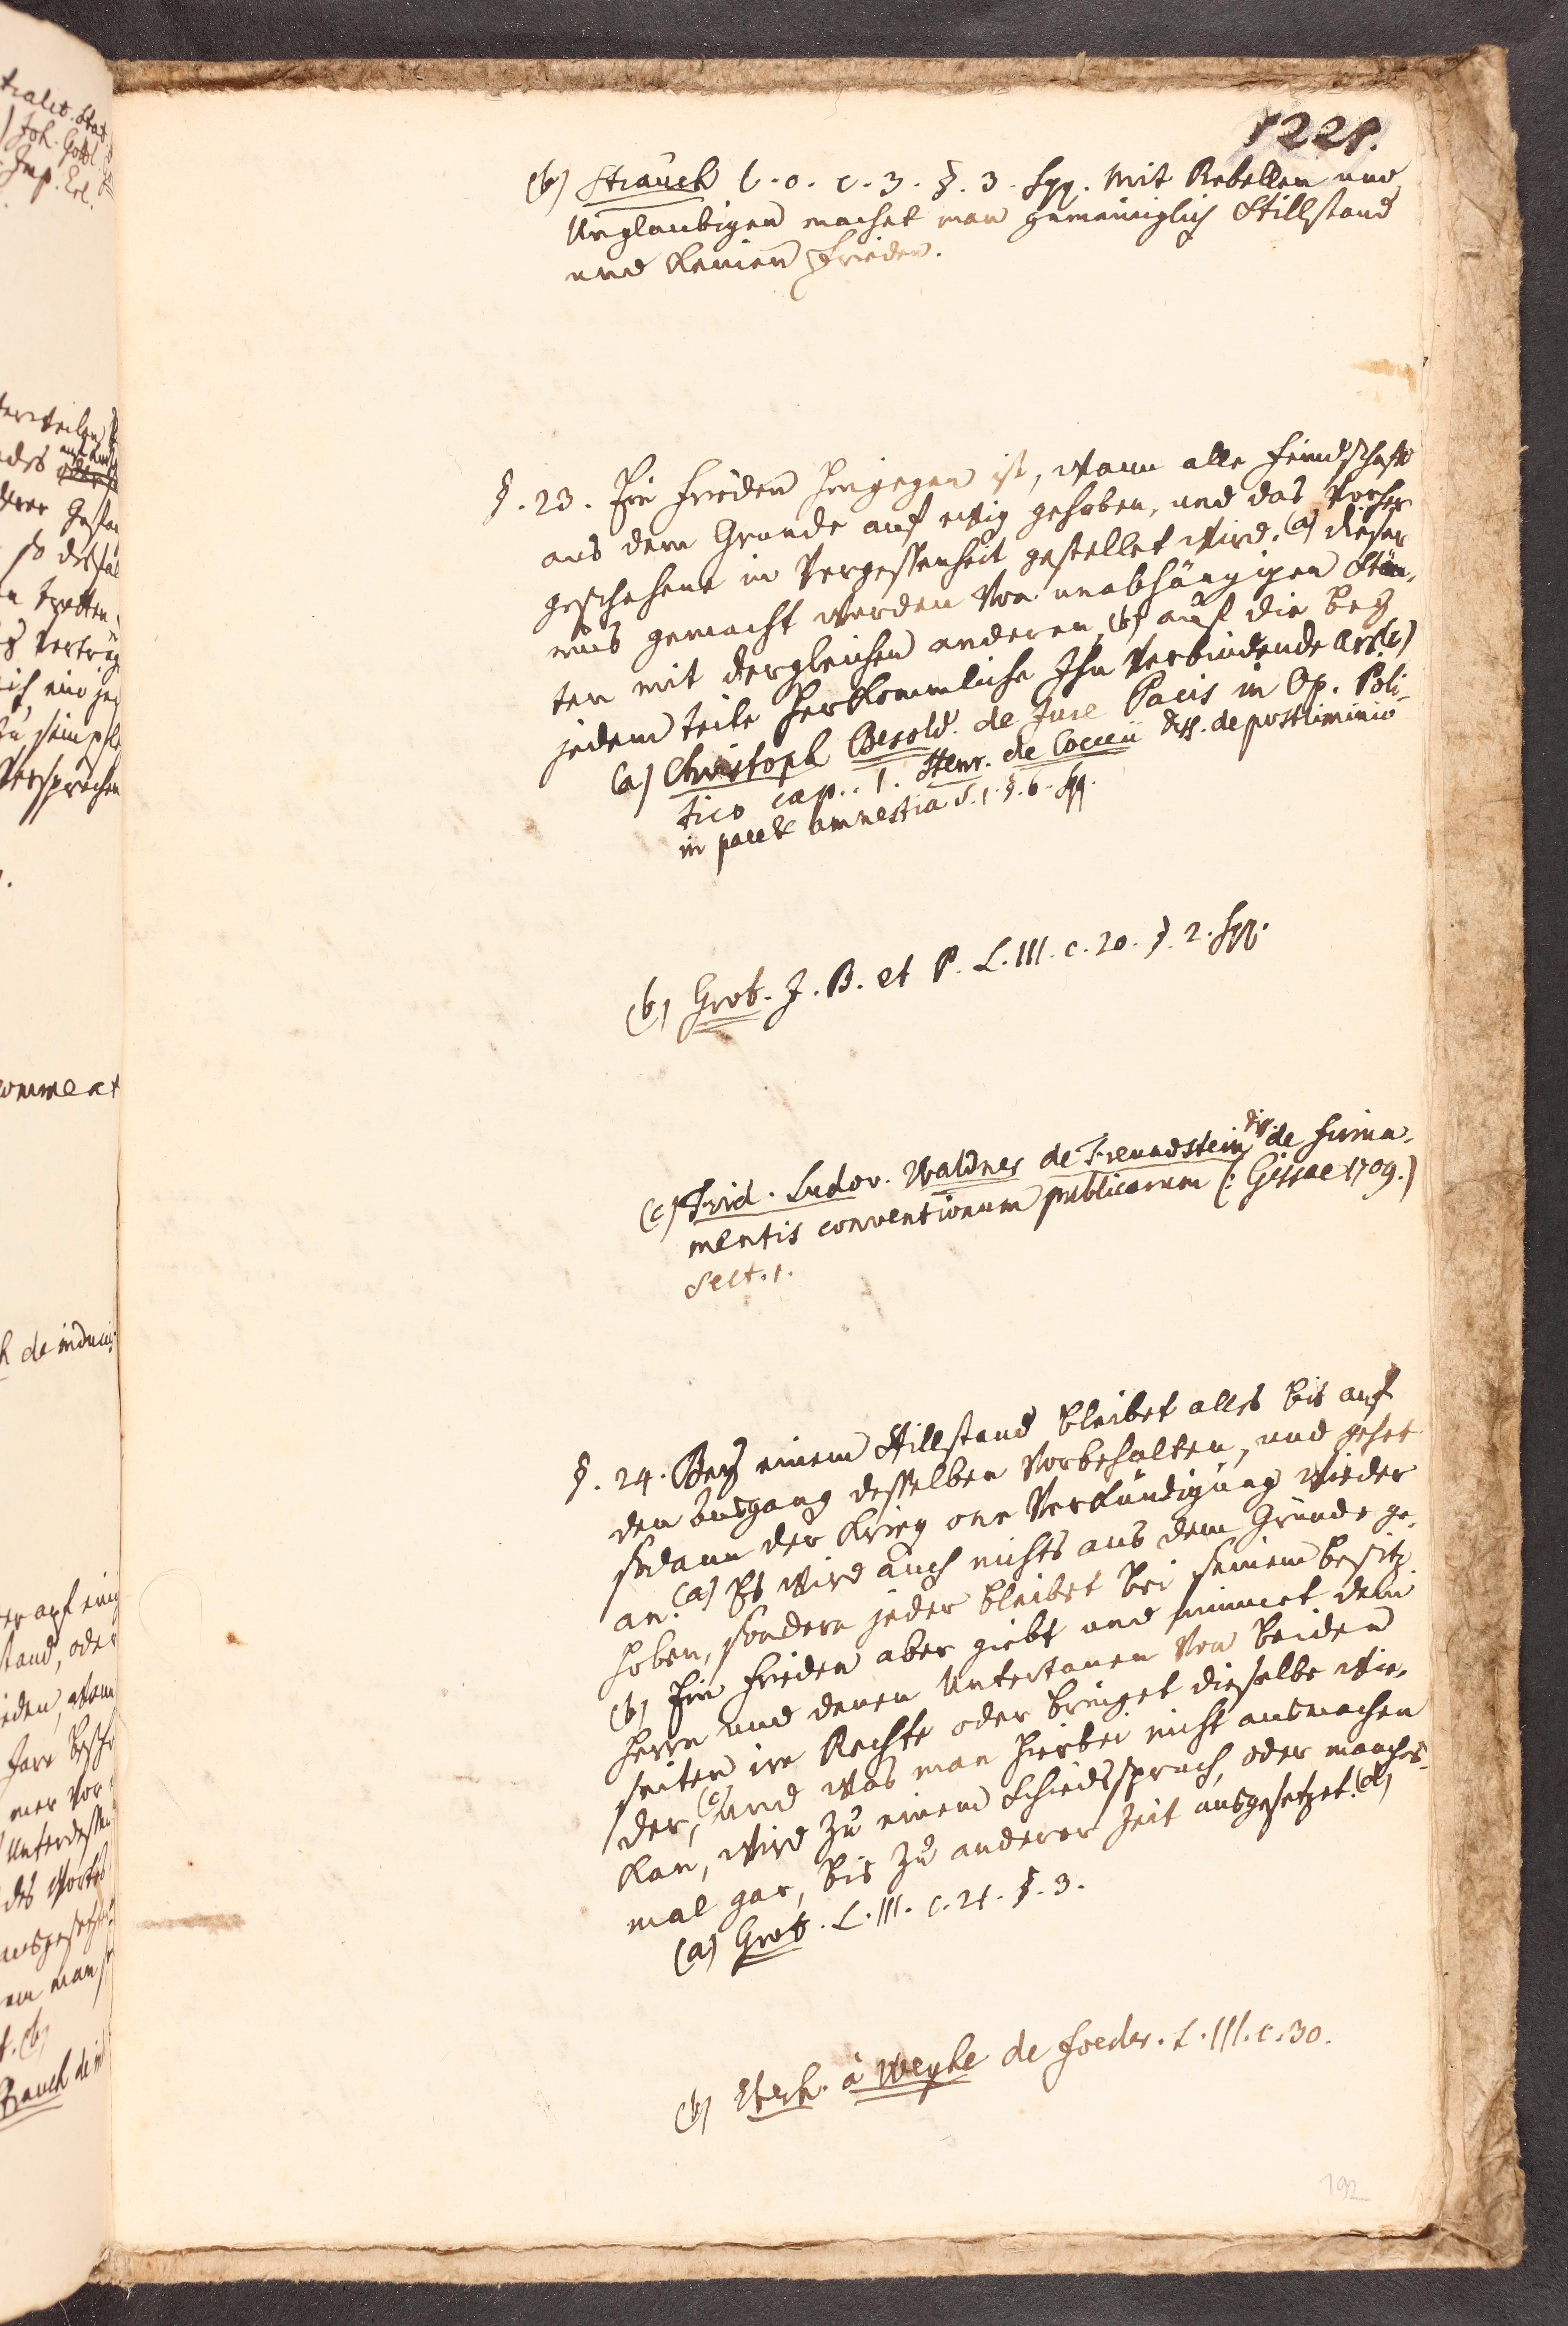 1221.
(b) Strauch l. o. c. 3. §. 3. sqq. Mit Rebellen und
Unglaubigen machet man gemeiniglich Stillstand
und keinen Frieden.
§. 23. Ein Frieden hingegen ist, wann alle Feindschaft
aus dem Grunde auf ewig gehoben, und das Vorher
geschehene in Vergessenheit gestellet wird. (a) dieser
mus gemacht werden von unabhängigen Stän-
ten mit dergleichen anderen, (b) auf die bey
jedem teile herkommliche Ihn verbindende Art (c)
(a) Christoph Besold. de Jure Pacis in Op. Poli-
tico cap. 1. Henr. de Cocceii diss. de postliminio
in pace & amnestia S. 1. §. 6. sqq.
(b) Grot. J. B. et P. L. III. c. 20. §. 2. sqq.
(c) Frid. Ludov. Waldner de Freundstein diss. de firma-
mentis conventionum publicarum (: Gissae 1709.)
Sect. 1.
§. 24. Bey einem Stillstand bleibet alles bis auf
den Ausgang desselben vorbehalten, und gehet
sodann der Krieg one Verkündigung wieder
an. (a) Es wird auch nichts aus dem Grunde ge-
hoben, sondern jeder bleibet bei seinem besitz
(b) Ein Frieden aber giebt und nimmet dem
Herrn und denen Untertanen von beiden
seiten ire Rechte oder bringet dieselbe wie-
der, (c) und was man hierbei nicht ausmachen
kan, wird zu einem Schiedsspruch, oder manches-
mal gar, bis zu anderer Zeit ausgesetzet. (d)
(a) Grot. L. III. c. 21. §. 3.
(b) à Weyhe de foeder. L. III. c. 30.
192